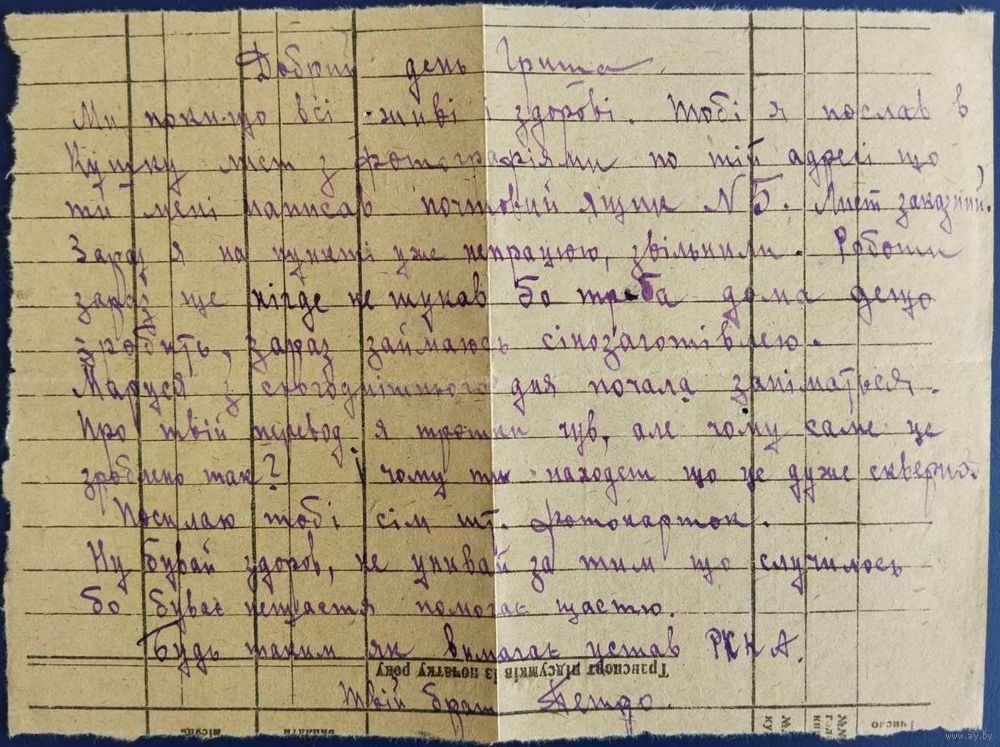 Добрий день Гриша
Ми поки-що всі живі і здорові. Тобі я послав в
Кушку лист з фотографіями по тій адресі що
ти мені написав почтовий ящик N 5. Лист заказний.
Зараз я на пункті уже непрацюю, звільнили. Роботи
зараз ще нігде не шукав бо треба дома дещо
зробить, зараз займаюсь сінозаготівлею.
Маруся з сьогоднішнього дня почала заніматься.
Про твій перевод я трошки чув, але чому саме це
зроблено так? і чому ти находеш що це дуже скверно.
Посилаю тобі сім шт. фотокарток.
Ну бувай здоров, не унивай за тим що случилось
бо буває нещастя помогає щастю.
Будь таким як вимагає устав РККА.
Транспорт підсумків із початку року
Твій брат Петро.
число
www.ay.by